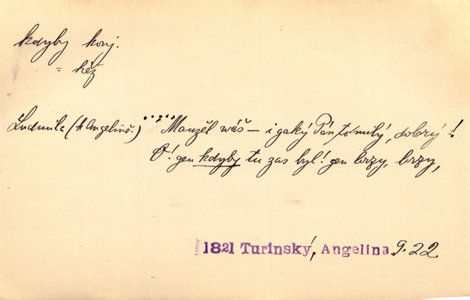 kdyby konj.
= kéž
Ludmila (k Angelině.) Manžel wáš — i gaký Pán to milý, dobrý!
O! gen kdyby tu zas byl! gen brzy, brzy,
1821 Turinský, Angelina 9.22